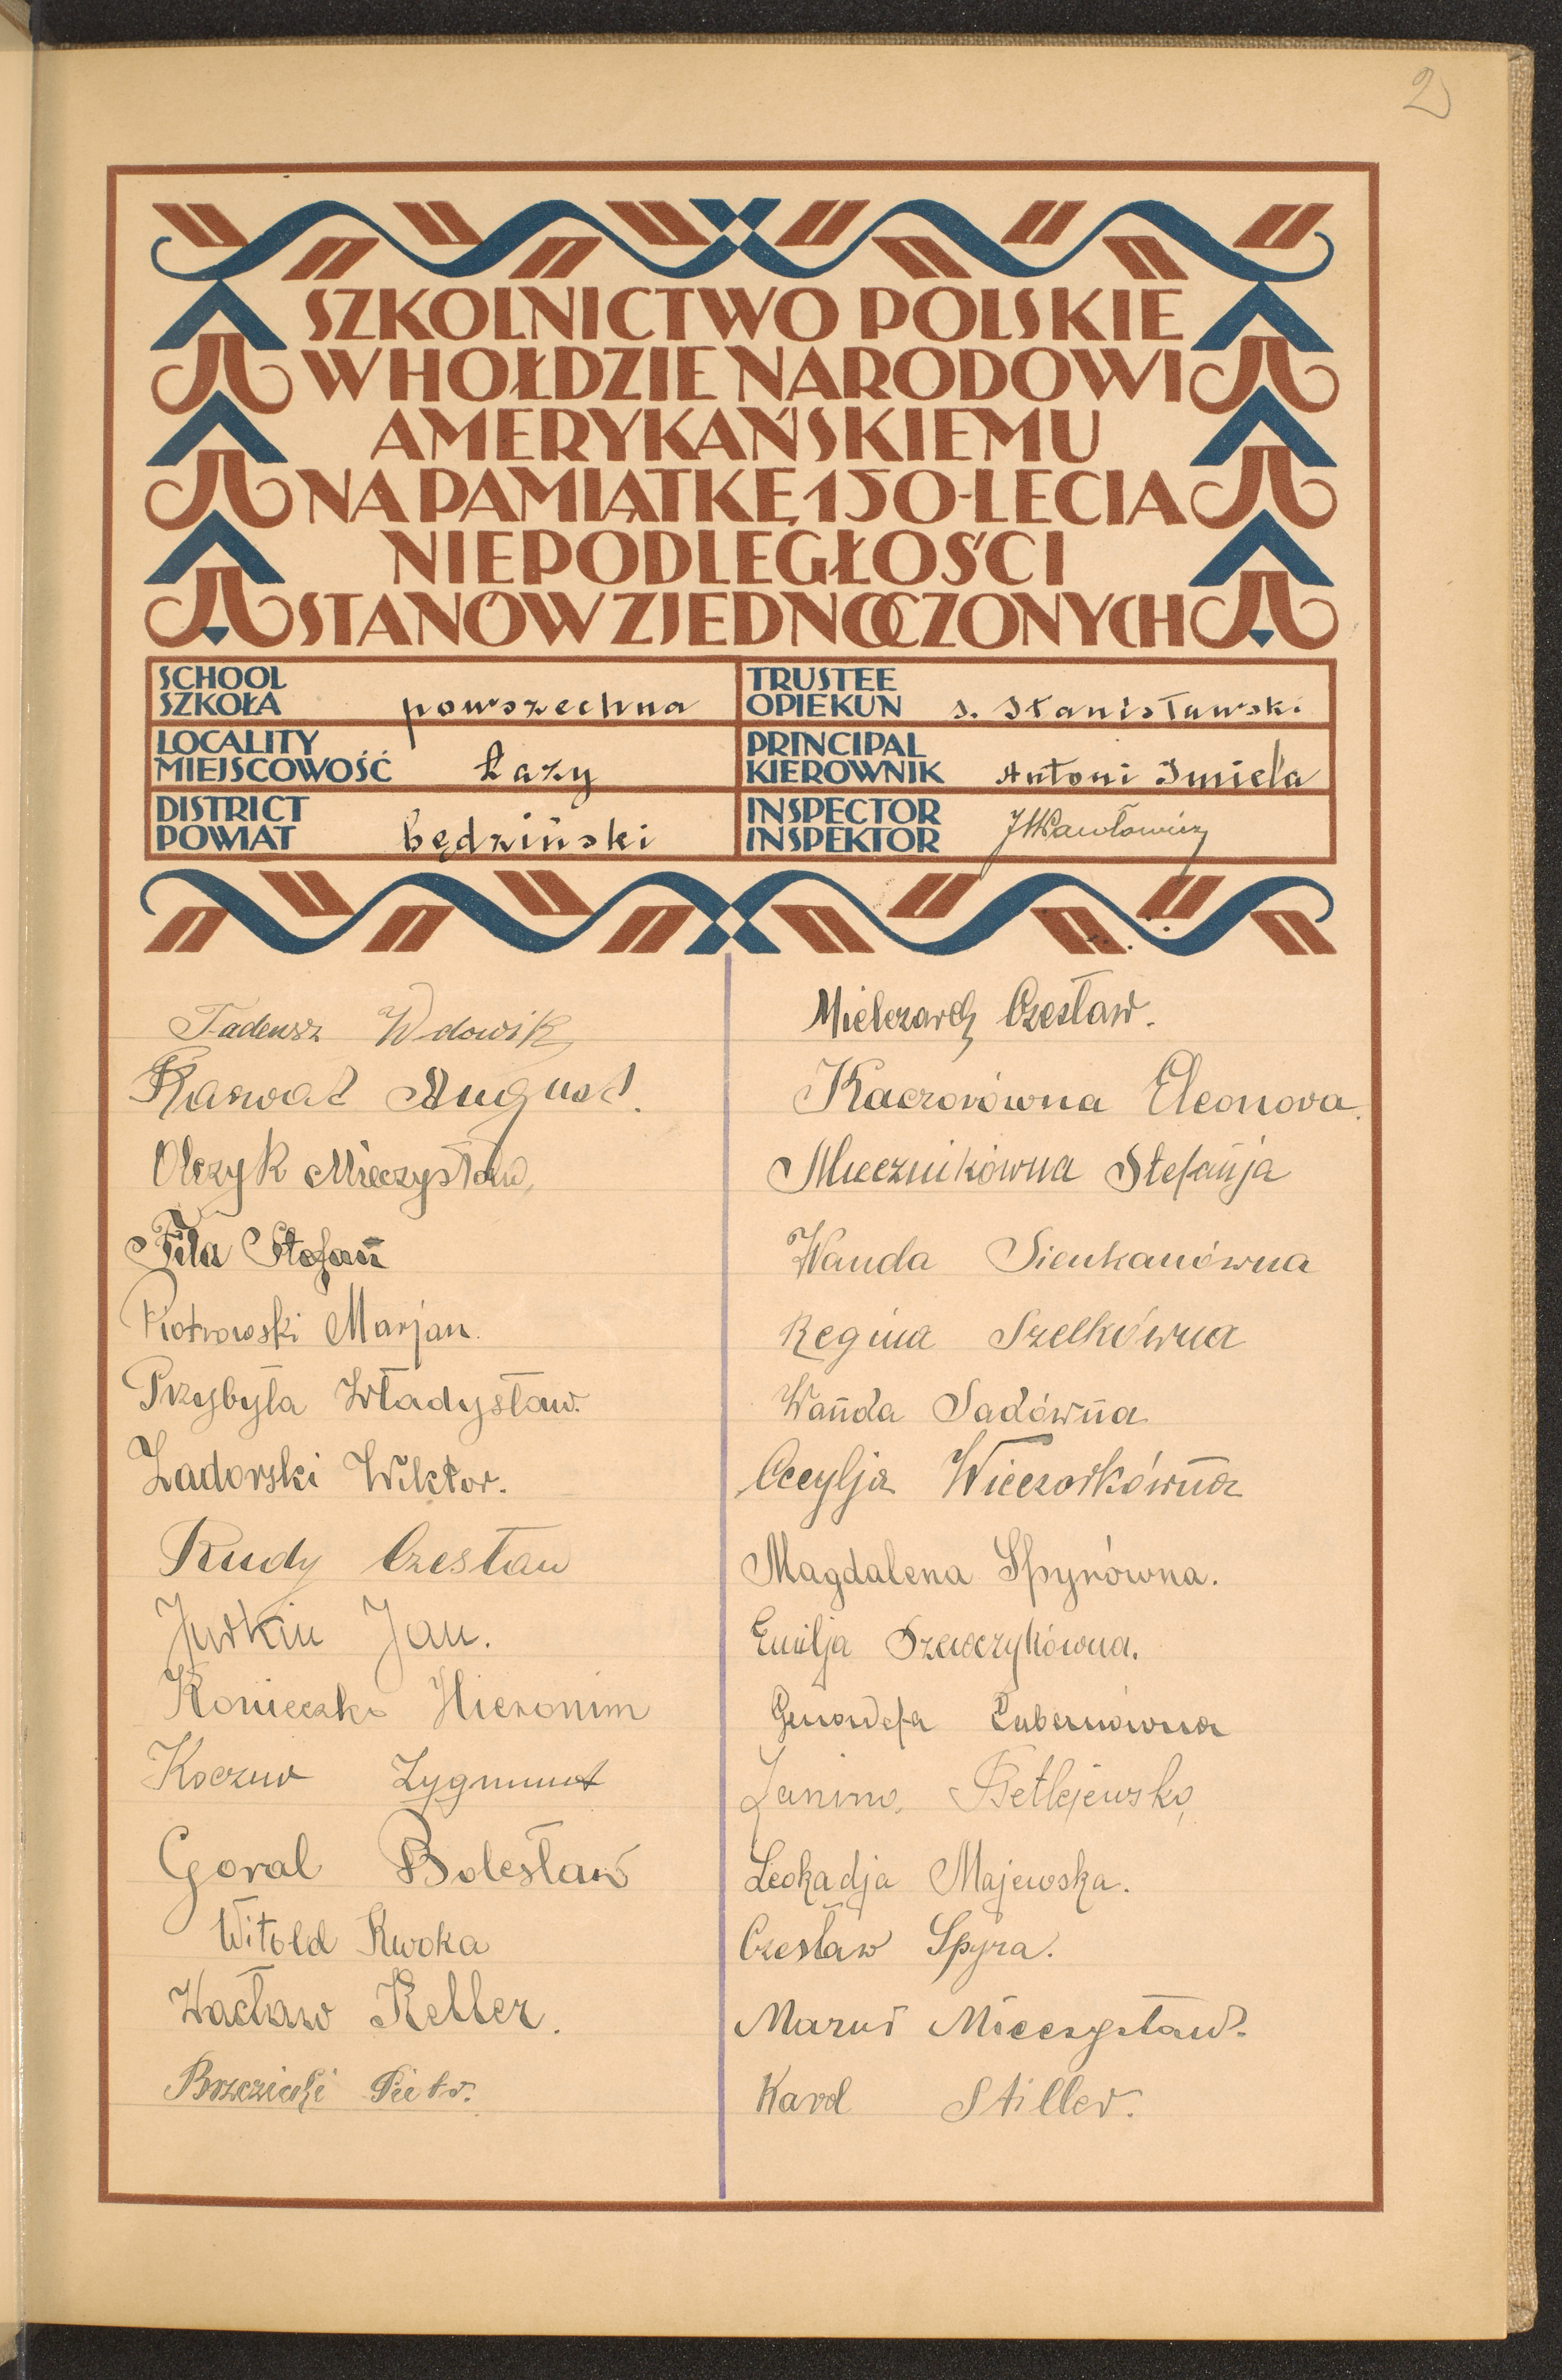 2
SZKOLNICTWO POLSKIE
W HOŁDZIE NARODOWI
AMERYKAŃSKIEMU
NA PAMIĄTKĘ 150-LECIA
NIEPODLEGŁOŚCI
STANÓW ZJEDNOCZONYCH
SCHOOL
SZKOŁA powszechna
TRUSTEE
OPIEKUN S. Stanisławski
LOCALITY
MIEJSCOWOŚĆ Łazy
PRINCIPAL
KIEROWNIK Antoni Imiela
DISTRICT
POWIAT będziński
INSPECTOR
INSPEKTOR
Tadeusz Wdowik
August.
Olczyk Mieczysław
Fila Stefan
Piotrowski Marjan.
Przybyła Władysław.
Zadorski Wiktor.
Rudy Czesław
Jurkin Jan.
Konieczko Hieronim
Koczur Zygmunt
Goral Bolesław
Witold Kwoka
Wacław Keller.
Piotr.
Mielczarek Czesław.
Kaczorówna Eleonora.
Miecznikówna Stefanja
Wanda Sienkanówna
Regina Szelkówna
Wanda Sadówna
Cecylja Wieczorkówna
Magdalena Spyrówna.
Emilja Szewczykówna.
Genowefa Lubernówna
Janina Betlejewska
Leokadja Majewska.
Czesław Spyra.
Maruś Mieczysław.
Karol Stiller.